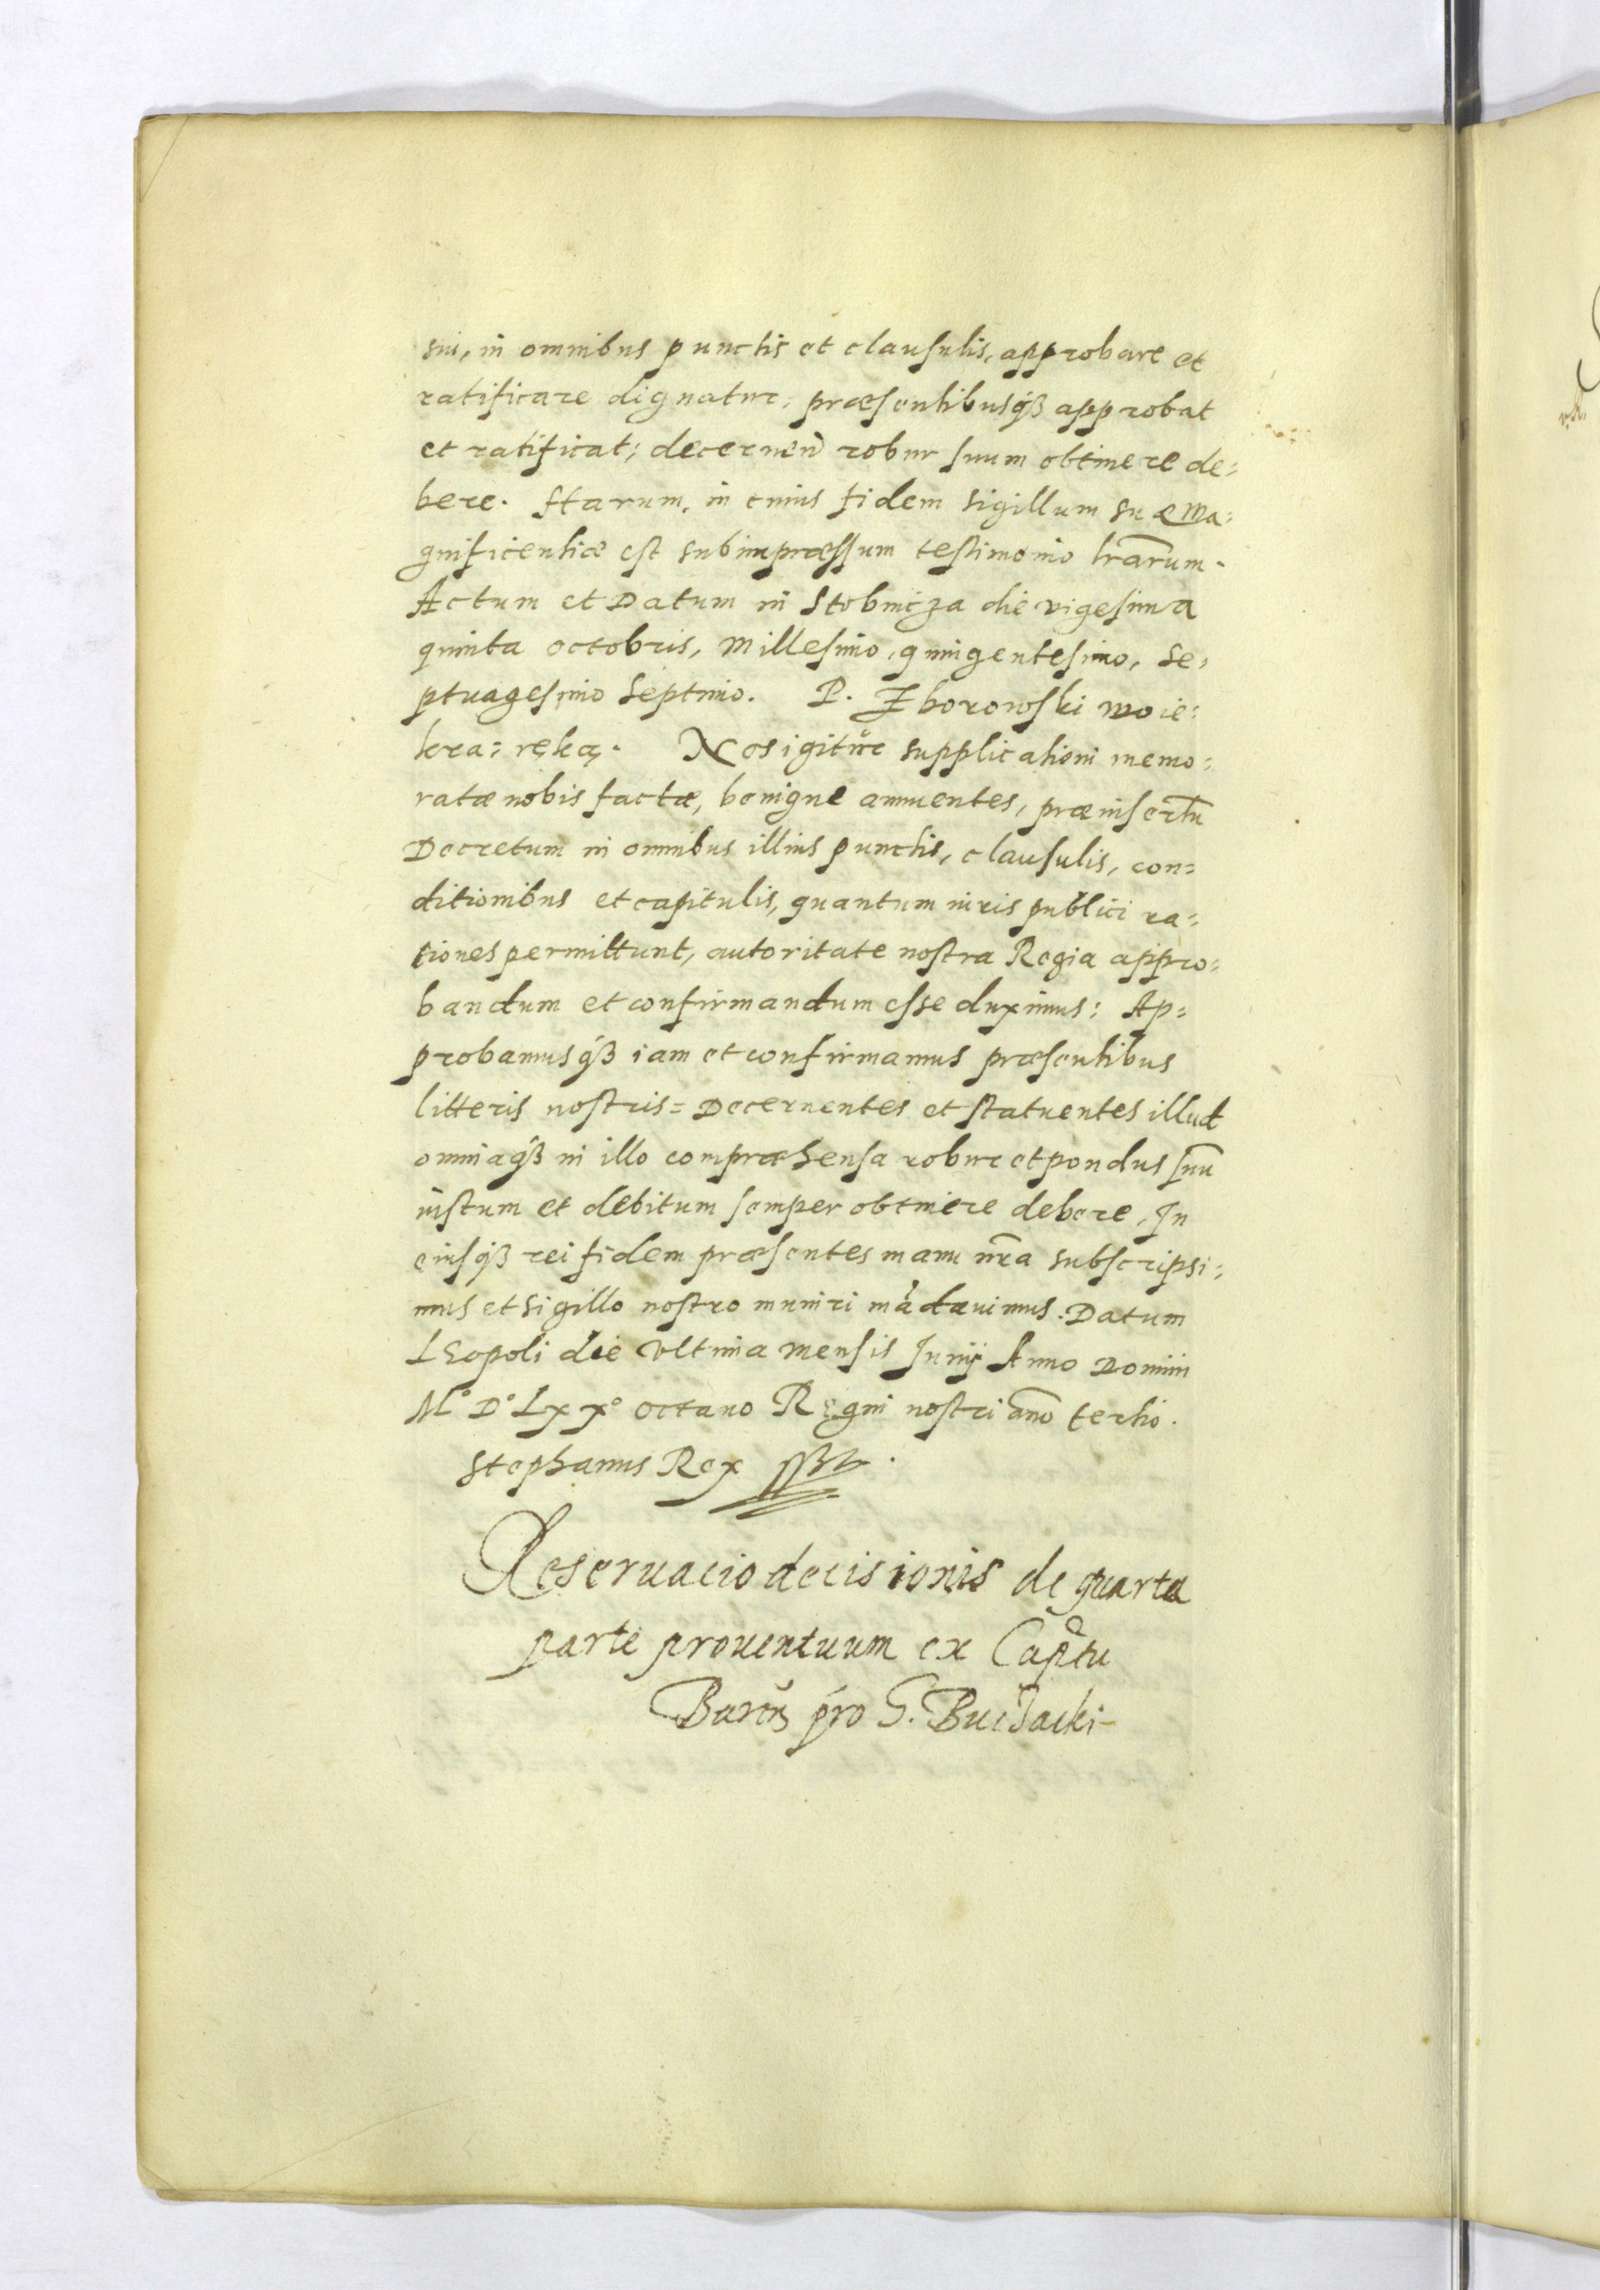 sui, in omnibus punctis et clausulis, approbare et
ratificare dignatur, praesentibusq́ꝫ approbat
et ratificat; decernen̄ robur suum obtinere de=
bere. Harum, in cuius fidem sigillum suae Ma=
gnificentiae est subimpraessum testimonio lrārum.
Actum et Datum in Stobnicza die vigesima
quinta octobris, Millesimo, quingentesimo, Se=
ptuagesimo Septimo. P. Zborowski Woie:
kra: ręką. Nos igitur supplicationi memo=
ratae nobis factae, benigne annuentes, praeinsertū
Decretum in omnibus illius punctis, clausulis, con=
ditionibus et capitulis, quantum iuris publici ra=
tiones permittunt, autoritate nostra Regia appro=
bandum et confirmandum esse duximus: Ap=
probamusq́ꝫ iam et confirmamus praesentibus
litteris nostris= Decernentes et statuentes illud
omniaq́ꝫ in illo compraehensa robur et pondus suū
iustum et debitum semper obtinere debere, In
eiusq́ꝫ rei fidem praesentes manu nrā subscripsi=
mus et sigillo nostro muniri mādauimus. Datum
LEopoli die Vltima mensis Junij Anno Domini
M° D° Lxx° octauo Regni nostri anō tertio.
Stephanus Rex
Reseruacio decisionis de quarta
parte prouentuum ex Captu
pro G. Buczacki